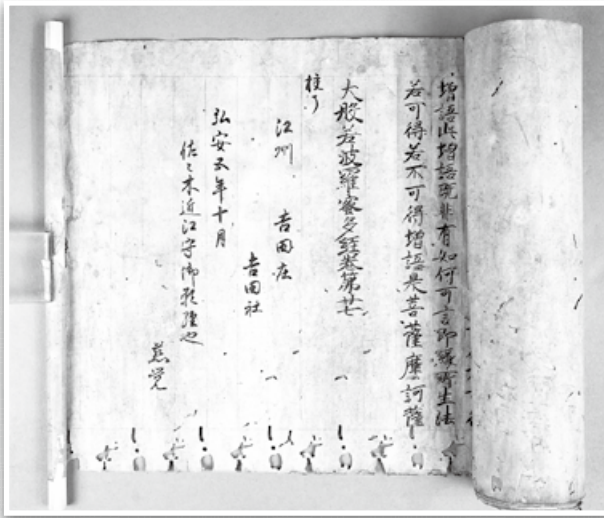 増語此増語既非有如何可言即縁所生法
若可得若不可得増語是菩薩摩訶薩
大般若波羅蜜多経巻第廿七
校了
江州 吉田庄
吉田社
弘安五年十月
佐々木近江守御願経也
慈覚